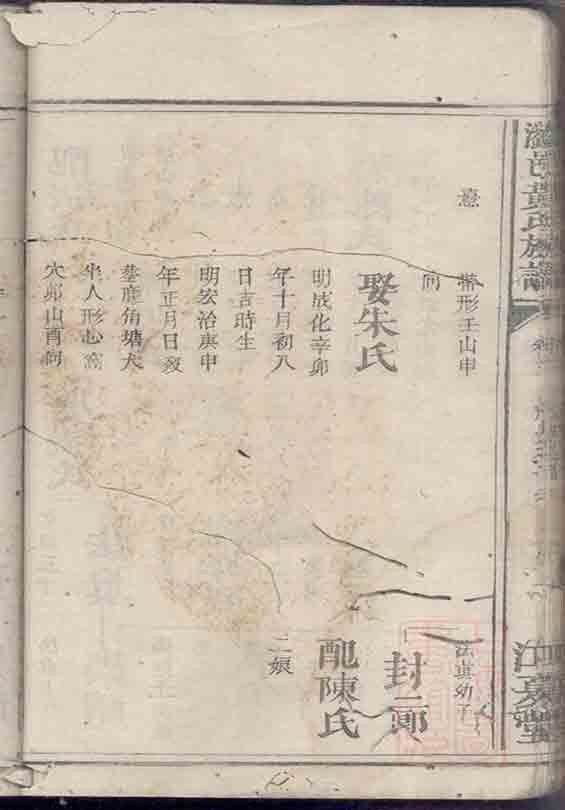 黃氏族譜
江夏堂
意
形壬山申
向
娶朱氏
明成化辛卯
年十月初八
日吉時生
明宏治庚申
年正月日歿
塟鹿角塘犬
坐人形心窩
穴卯山酉向
法真幼子
封二郎
配陳氏
二娘